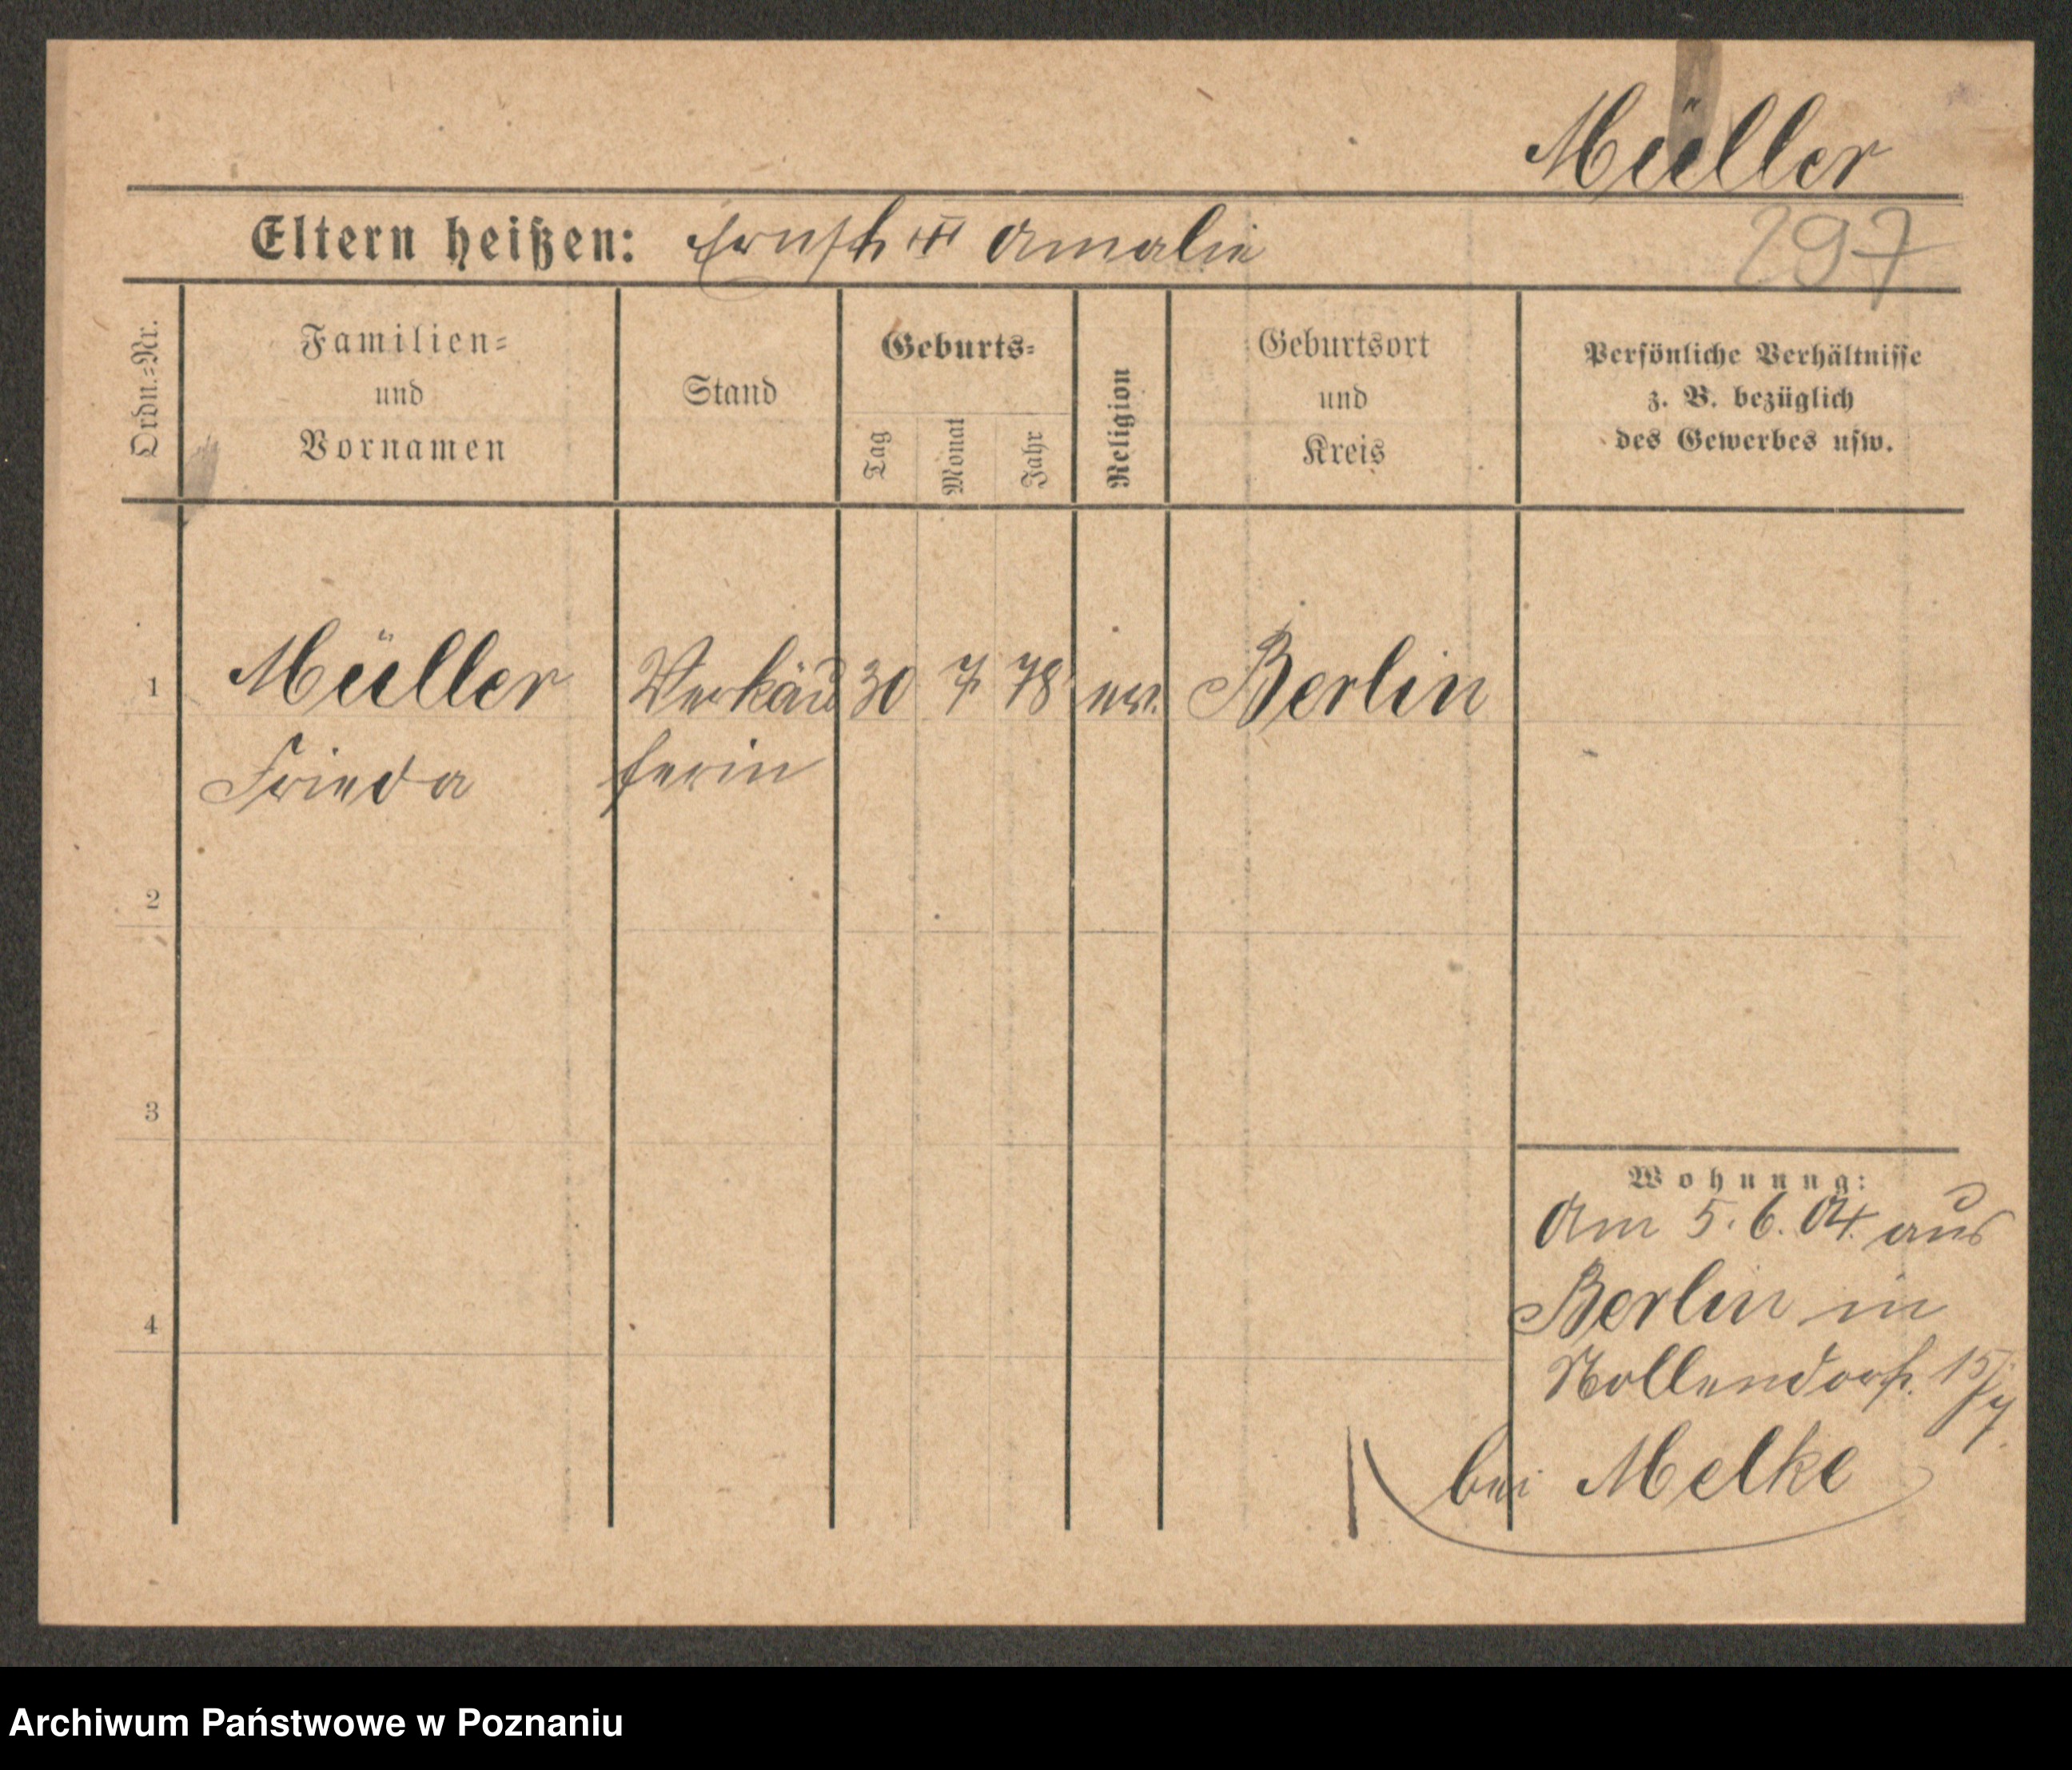 Müller
Eltern heißen: Ernst Amalie
297
Ordn.-Nr.
Familien-
und
Vornamen
Stand
Geburts-
Tag
Monat
Jahr
Religion
Geburtsort
und
Kreis
Persönliche Verhältnisse
z. B. bezüglich
des Gewerbes usw.
1 Müller Verkäu 30 7 78 ev. Berlin
Frieda ferin
2
3
4
Wohnung:
Am 5. 6. 04. aus
Berlin in
Nollendorf. 15/7.
bei Melke
Archiwum Państwowe w Poznaniu